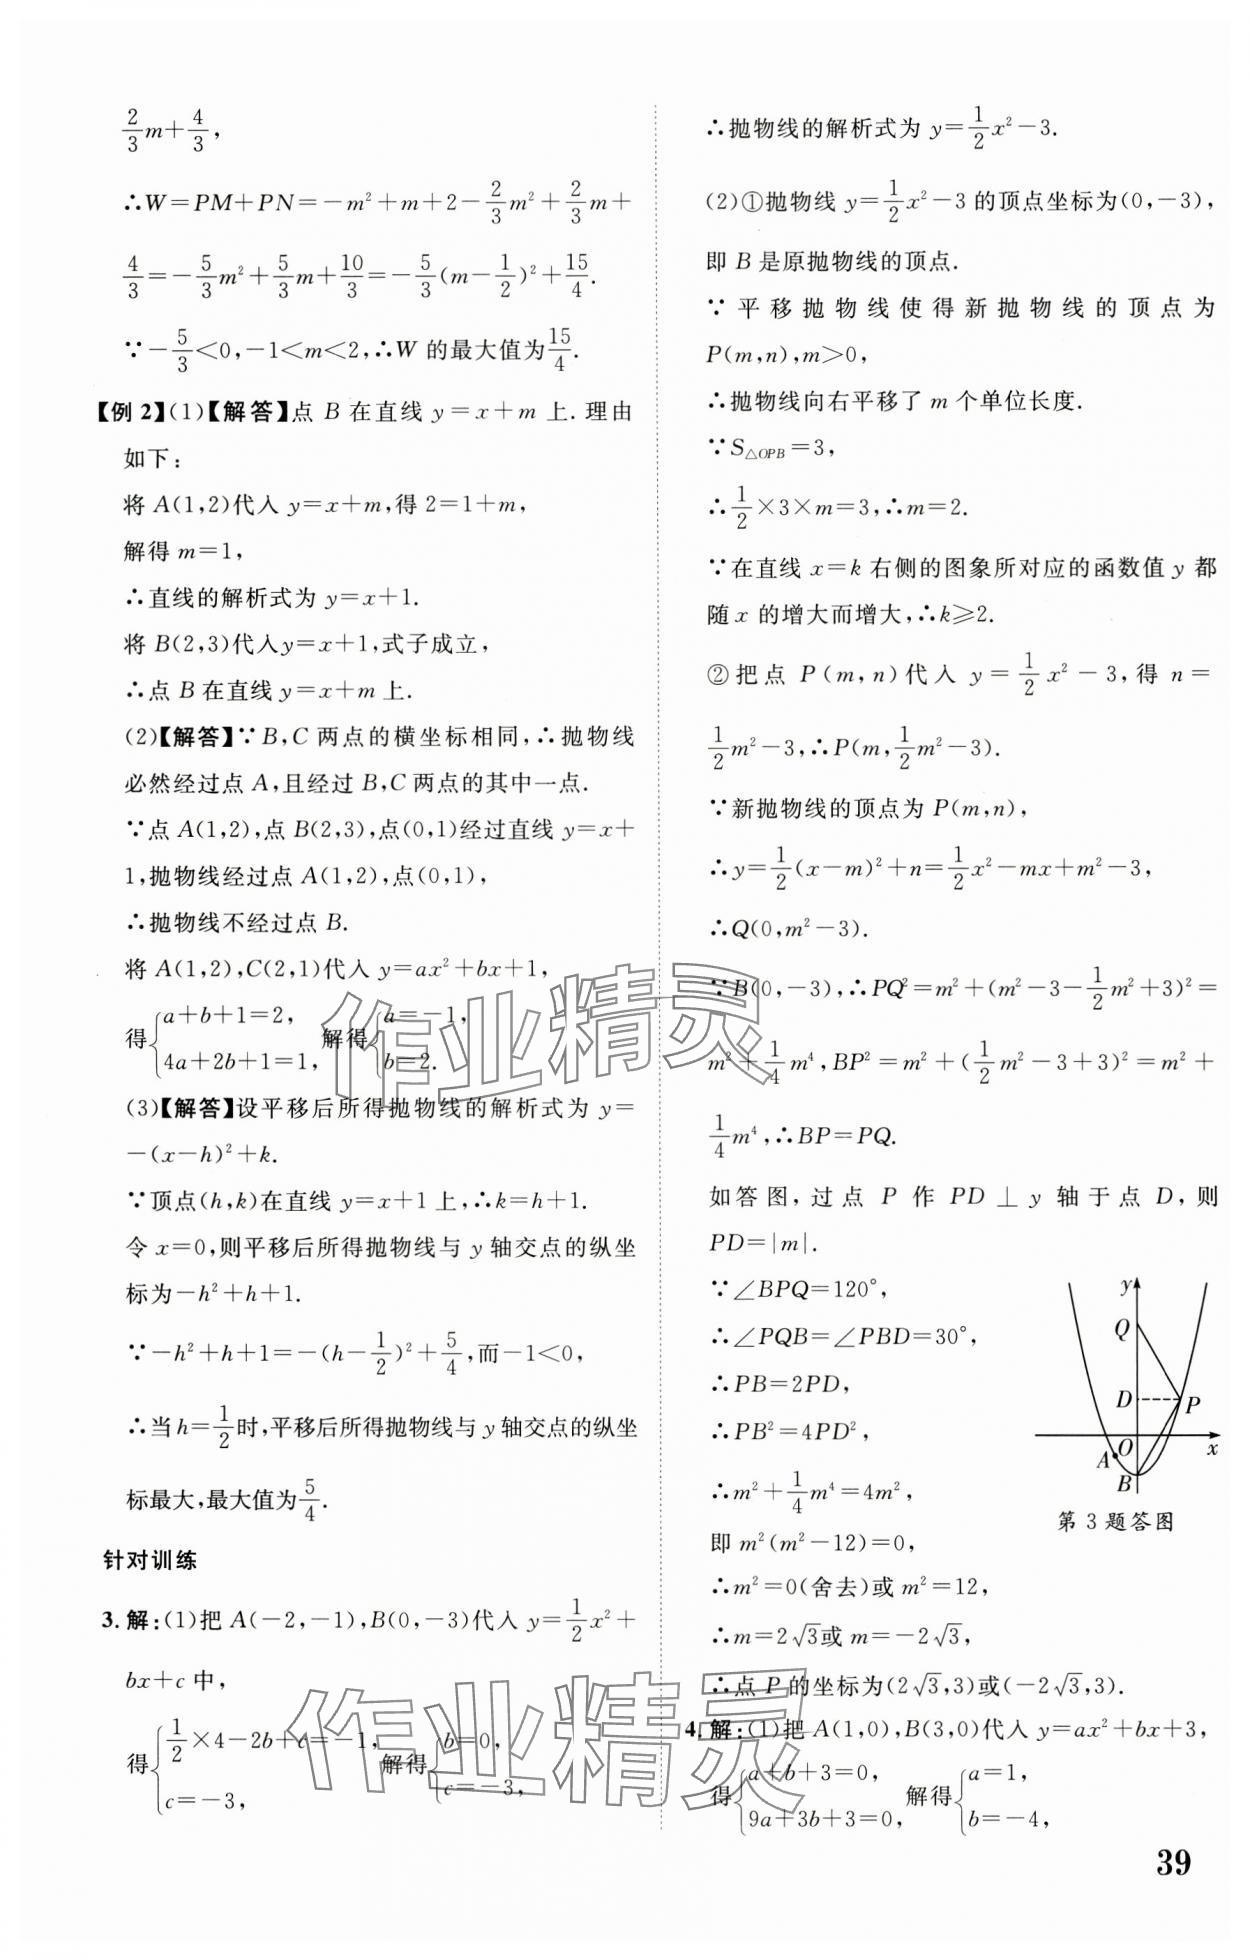 2/3 m+4/3,
∴W=PM+PN=-m²+m+2-2/3 m²+2/3 m+
4/3=-5/3 m²+5/3 m+10/3=-5/3(m-1/2)²+15/4.
∵-5/3<0,-1<m<2,∴W 的最大值为15/4.
【例 2】(1)【解答】点 B 在直线 y=x+m 上.理由
如下:
将 A(1,2)代入 y=x+m,得 2=1+m,
解得 m=1,
∴直线的解析式为 y=x+1.
将 B(2,3)代入y=x+1,式子成立,
∴点 B 在直线 y=x+m 上.
(2)【解答】∵B,C 两点的横坐标相同,∴抛物线
必然经过点 A,且经过 B,C 两点的其中一点.
∵点 A(1,2),点 B(2,3),点(0,1)经过直线 y=x+
1,抛物线经过点 A(1,2),点(0,1),
∴抛物线不经过点 B.
将 A(1,2),C(2,1)代入 y=ax²+bx+1,
得{a+b+1=2, 4a+2b+1=1, 解得{a=-1, b=2.
(3)【解答】设平移后所得抛物线的解析式为 y=
-(x-h)²+k.
∵顶点(h,k)在直线 y=x+1 上,∴k=h+1.
令 x=0,则平移后所得抛物线与 y 轴交点的纵坐
标为-h²+h+1.
∵-h²+h+1=-(h-1/2)²+5/4,而-1<0,
∴当 h=1/2时,平移后所得抛物线与 y 轴交点的纵坐
标最大,最大值为5/4.
针对训练
3.解:(1)把 A(-2,-1),B(0,-3)代入 y=1/2 x²+
bx+c 中,
得{1/2×4-2b+c=-1, c=-3, 解得{b=0, c=-3,
∴抛物线的解析式为 y=1/2 x²-3.
(2)①抛物线 y=1/2 x²-3 的顶点坐标为(0,-3),
即 B 是原抛物线的顶点.
∵平移抛物线使得新抛物线的顶点为
P(m,n),m>0,
∴抛物线向右平移了 m 个单位长度.
∵S△OPB=3,
∴1/2×3×m=3,∴m=2.
∵在直线 x=k 右侧的图象所对应的函数值 y 都
随 x 的增大而增大,∴k≥2.
②把点 P(m,n)代入 y=1/2 x²-3,得 n=
1/2 m²-3,∴P(m,1/2 m²-3).
∵新抛物线的顶点为 P(m,n),
∴y=1/2(x-m)²+n=1/2 x²-mx+m²-3,
∴Q(0,m²-3).
∵B(0,-3),∴PQ²=m²+(m²-3-1/2 m²+3)²=
m²+1/4 m⁴,BP²=m²+(1/2 m²-3+3)²=m²+
1/4 m⁴,∴BP=PQ.
如答图,过点 P 作 PD⊥y 轴于点 D,则
PD=|m|.
∵∠BPQ=120°,
∴∠PQB=∠PBD=30°,
∴PB=2PD,
∴PB²=4PD²,
∴m²+1/4 m⁴=4m²,
即 m²(m²-12)=0,
∴m²=0(舍去)或 m²=12,
∴m=2√3或 m=-2√3,
∴点 P 的坐标为(2√3,3)或(-2√3,3).
y
Q
D
P
A
O
x
B
第 3 题答图
4.解:(1)把 A(1,0),B(3,0)代入 y=ax²+bx+3,
得{a+b+3=0, 9a+3b+3=0, 解得{a=1, b=-4,
39
作业精灵
作业精灵